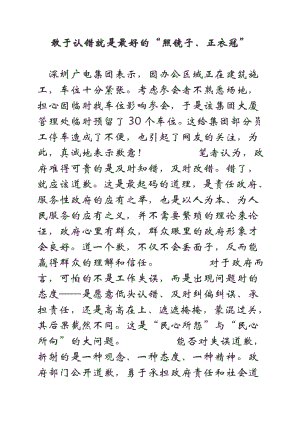 敢于认错就是最好的“照镜子、正衣冠”
深圳广电集团表示，因办公区域正在建筑施
工，车位十分紧张。考虑参会者不熟悉场地，
担心因临时找车位影响参会，于是该集团大厦
管理处临时预留了30个车位。这给集团部分员
工停车造成了不便，也引起了网友的关注，为
此，真诚地表示歉意！ 笔者认为，政
府难得可贵的是及时知错，及时改错。错了，
就应该道歉。这是最起码的道理，是责任政府、
服务性政府的应有之举，也是以人为本、为人
民服务的应有之义，并不需要繁琐的理论来论
证，政府心里有群众，群众眼里的政府形象才
会良好。道一个歉，不仅不会丢面子，反而能
赢得群众的理解和信任。 对于政府而
言，可怕的不是工作失误，而是出现问题时的
态度——是愿意低头认错、及时纠偏纠误、承
担责任，还是高高在上、遮遮掩掩，蒙混过关，
其后果截然不同。这是“民心所怨”与“民心
所向”的大问题。 能否对失误道歉，
折射的是一种观念、一种态度、一种精神。政
府部门公开道歉，勇于承担政府责任和社会道